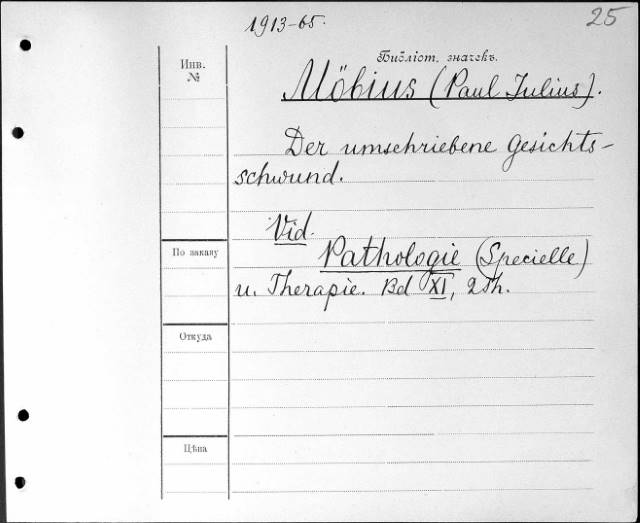 1913-65.
25
Инв.
№
Библіот. значекъ.
Möbius (Paul Julius).
Der umschriebene Gesichts-
schwund.
Vid.
Pathologie (Specielle)
По заказу
u. Therapie. Bd XI, 2 Th.
Откуда
Цѣна